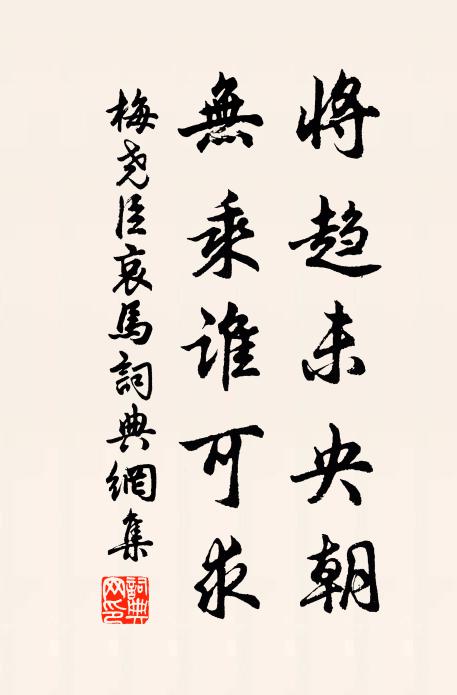 将趋未央朝
無乘谁可求
梅尧臣哀馬詞典網集
詞典网印